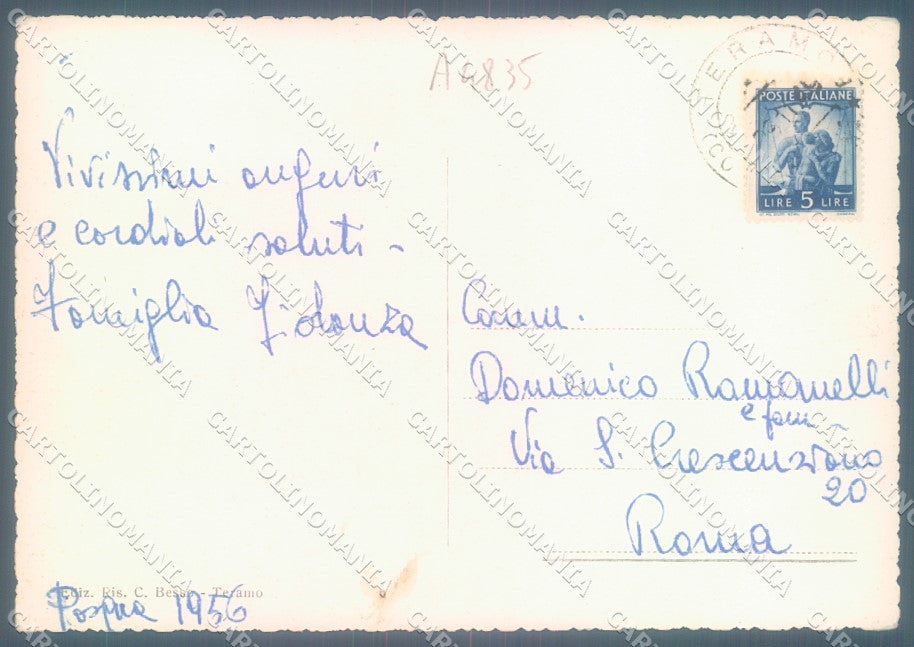 A4835
TERAMO
POSTE ITALIANE
LIRE 5 LIRE
Vivissimi auguri
e cordiali saluti -
Famiglia Fidanza
Comm.
Domenico Romanelli
e fam
Via S. Crescenziano
20
Roma
Ediz. Fis. C. Besso - Teramo
Pasqua 1956
CARTOLINOMANIA